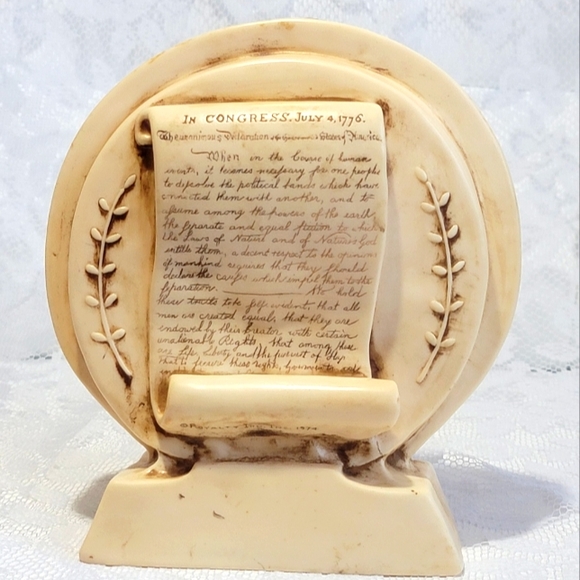 IN CONGRESS. JULY 4, 1776.
When in the Course of human
events, it becomes necessary for one people
to dissolve the political bands which have
connected them with another, and to
assume among the powers of the earth,
the separate and equal station to which
the Laws of Nature and of Nature's God
entitle them, a decent respect to the opinions
of mankind requires that they should
declare the causes which impel them to the
separation. We hold
these truths to be self evident, that all
men are created equal, that they are
endowed by their Creator with certain
unalienable Rights, that among these
are Life, Liberty and the pursuit of Hap
That to secure these rights,
© 1974